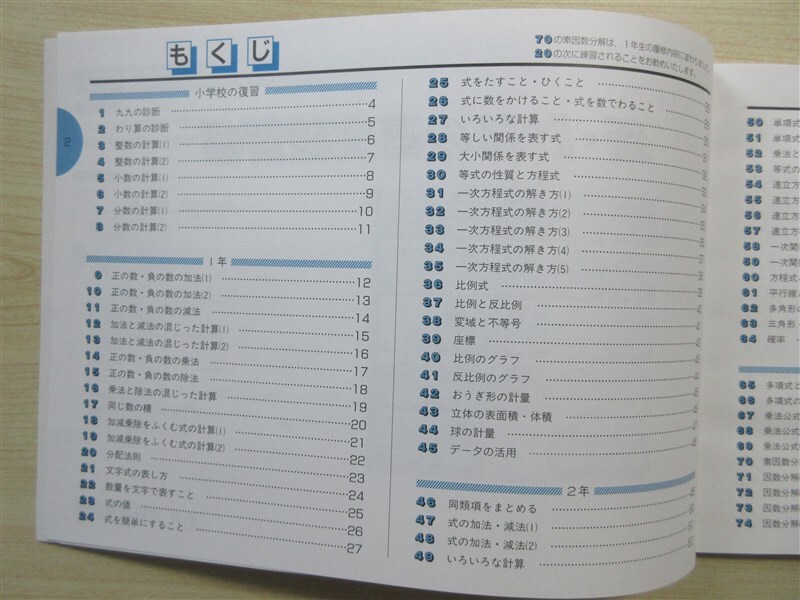 もくじ
70の素因数分解は、1年生の履修内容に変わりました。
20の次に練習されることをお勧めいたします。
2
小学校の復習
1 九九の診断 4
2 わり算の診断 5
3 整数の計算(1) 6
4 整数の計算(2) 7
5 小数の計算(1) 8
6 小数の計算(2) 9
7 分数の計算(1) 10
8 分数の計算(2) 11
1年
9 正の数・負の数の加法(1) 12
10 正の数・負の数の加法(2) 13
11 正の数・負の数の減法 14
12 加法と減法の混じった計算(1) 15
13 加法と減法の混じった計算(2) 16
14 正の数・負の数の乗法 17
15 正の数・負の数の除法 18
16 乗法と除法の混じった計算 19
17 同じ数の積 20
18 加減乗除をふくむ式の計算(1) 21
19 加減乗除をふくむ式の計算(2) 22
20 分配法則 23
21 文字式の表し方 24
22 数量を文字で表すこと 25
23 式の値 26
24 式を簡単にすること 27
25 式をたすこと・ひくこと
26 式に数をかけること・式を数でわること
27 いろいろな計算
28 等しい関係を表す式
29 大小関係を表す式
30 等式の性質と方程式
31 一次方程式の解き方(1)
32 一次方程式の解き方(2)
33 一次方程式の解き方(3)
34 一次方程式の解き方(4)
35 一次方程式の解き方(5)
36 比例式
37 比例と反比例
38 変域と不等号
39 座標
40 比例のグラフ
41 反比例のグラフ
42 おうぎ形の計量
43 立体の表面積・体積
44 球の計量
45 データの活用
2年
46 同類項をまとめる
47 式の加法・減法(1)
48 式の加法・減法(2)
49 いろいろな計算
50 単項式
51 単項式
52 乗法と
53 等式の
54 連立方
55 連立方
56 連立方
57 連立方
58 一次関
59 一次関
60 方程式
61 平行線
62 多角形
63 三角形
64 確率
65 多項式と
66 多項式の
67 乗法公式
68 乗法公式
69 乗法公式
70 素因数分
71 因数分解
72 因数分解
73 因数分解
74 因数分解